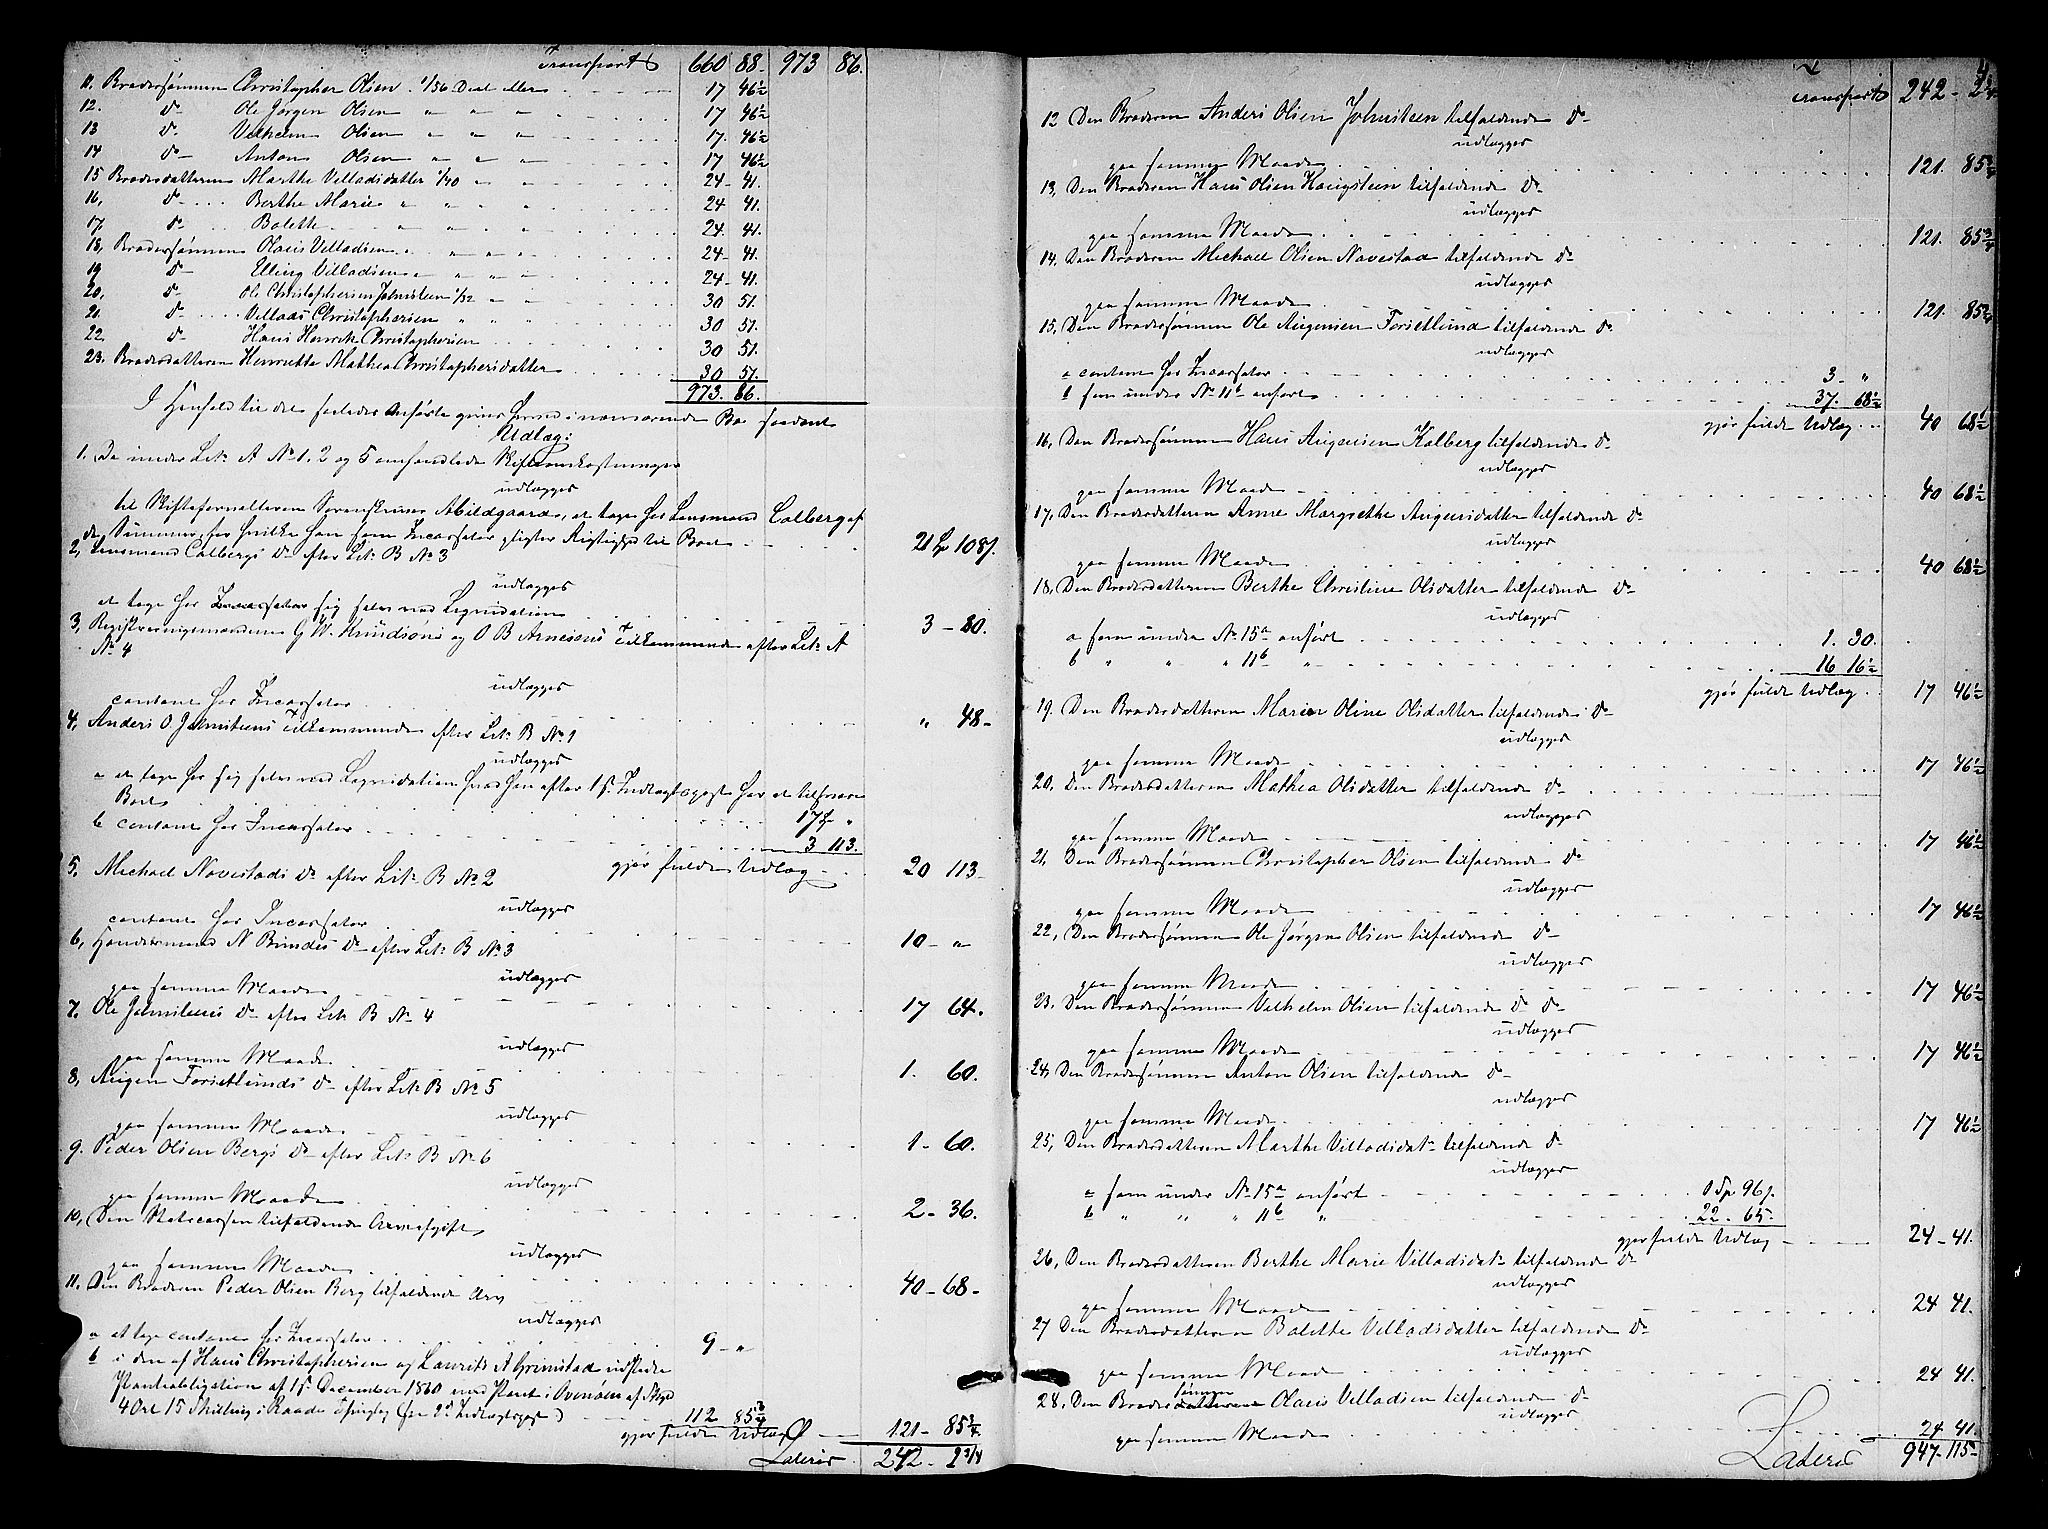 Transport 660 88 973 86.
11. Brodersønnen Christopher Olsen 1/56 Deel eller 17 46½
12. do Ole Jørgen Olsen " " " 17 46½
13 do Velhelm Olsen " " " 17. 46½
14 do Anton Olsen " " " 17 46½
15 Broderdatteren Marthe Villadsdatter 1/40 " " 24 41.
16, do Berthe Marie " " " 24 41.
17, do Bolette " " " 24. 41.
18, Brodersønnen Olaus Villadsen " " " 24 41.
19 do Elling Villadsen " " " 24 41.
20, do Ole Christophersen Johnsteen 1/32 " 30 51.
21. do Villads Christophersen " " 30 51.
22 do Hans Henrik Christophersen 30 51.
23. Broderdatteren Henriette Mathea Christophersdatter 30 51.
973. 86.
I Henhold til det saaledes Anførte gives herved i nærværende Bo saadant
Udlæg:
1. De under Litr A No 1. 2 og 5 omhandlede Skifteomkostninger
udlægges
til Skifteforvalteren Sorenskriver Abildgaard, at tage hos Lensmand Calberg af
de Summer, for hvilke han som Incassator pligter Rigtighed til Boet 21 Sp 108 s.
2, Lensmand Calbergs do efter Litr B No 3
udlægges
at tage hos Incassator sig selv ved Liqvidation 3 - 80.
3, Registreringsmændene G W. Knudsøns og O B Arnesens Tilkommende efter Litr A
No 4
udlægges
contant hos Incassator " 48 -
4, Anders O. Johnsteens Tilkommende efter Litr B No 1
udlægges
a at tage hos sig selv ved Liqvidation hvad han efter 1ste Indtægtspost har at tilsvare
Boet 17 Sp "
b contant hos Incassator 3 113.
gjør fulde Udlæg 20 113 -
5, Michael Navestads do efter Litr B No 2
udlægges
contant hos Incassator 10 - "
6, Handelsmand N Bundes do efter Litr B No 3
udlægges
paa samme Maade 17 64.
7. Ole Johnsteens do efter Litr B No 4
udlægges
paa samme Maade 1. 60.
8, Augen Forsetlunds do efter Litr B No 5
udlægges
paa samme Maade 1 - 60.
9. Peder Olsen Bergs do efter Litr B No 6
udlægges
paa samme Maade 2 - 36.
10, Den Statscassen tilfaldende Arveafgift
udlægges
paa samme Maade 40 - 68 -
11. Den Broderen Peder Olsen Berg tilfaldende Arv
udlægges
a at tage contant hos Incassator 9 - "
b i den af Hans Christophersen og Laurits A Grimstad udstedte
Pantobligation af 15 December 1860 med Pant i Ovenøen af Skyld
4 Ort 15 Skilling i Raade Thinglag (see 2den Indtægtspost) 112 85¾
gjør fulde Udlæg 121 - 85¾
Lateris 242 - 2 3/4

4
Transport 242 - 2¾
12 Den Broderen Anders Olsen Johnsteen tilfaldende do
udlægges
paa samme Maade 121. 85¾
13, Den Broderen Hans Olsen Haugsteen tilfaldende do
udlægges
paa samme Maade 121. 85¾
14. Den Broderen Michael Olsen Navestad tilfaldende do
udlægges
paa samme Maade 121 85¾
15, Den Brodersønnen Ole Augensen Forsetlund tilfaldende do
udlægges
a contant hos Incassator 3 - "
b som under No 11 b anført 37. 68½
gjør fulde Udlæg 40 68½
16, Den Brodersønnen Hans Augensen Kolberg tilfaldende do
udlægges
paa samme Maade 40 68½
17, Den Broderdatteren Anne Margrethe Augensdatter tilfaldende do
udlægges
paa samme Maade 40 68½
18, Den Broderdatteren Berthe Christine Olsdatter tilfaldende do
udlægges
a som under No 15 a anført 1. 30.
b " " " 11 b " 16 16½
gjør fulde Udlæg 17 46½
19. Den Broderdatteren Maren Oline Olsdatter tilfaldende do
udlægges
paa samme Maade 17 46½
20. Den Broderdatteren Mathea Olsdatter tilfaldende do
udlægges
paa samme Maade 17 46½
21. Den Brodersønnen Christopher Olsen tilfaldende do
udlægges
paa samme Maade 17 46½
22, Den Brodersønnen Ole Jørgen Olsen tilfaldende do
udlægges
paa samme Maade 17 46½
23. Den Brodersønnen Velhelm Olsen tilfaldende do do
udlægges
paa samme Maade 17 46½
24, Den Brodersønnen Anton Olsen tilfaldende do
udlægges
paa samme Maade 17 46½
25, Den Broderdatteren Marthe Villadsdatr tilfaldende do
udlægges
a som under No 15 a anført 1 Sp 96 s.
b " " " 11 b " 22 - 65.
gjør fulde Udlæg 24 - 41.
26, Den Broderdatteren Berthe Marie Villadsdatr tilfaldende do
udlægges
paa samme Maade 24 41.
27 Den Broderdatteren Bolette Villadsdatter tilfaldende do
udlægges
paa samme Maade 24 41.
28, Den Brodersønnen Olaus Villadsen tilfaldende do
udlægges
paa samme Maade 24 41.
Lateris 947 - 115 -